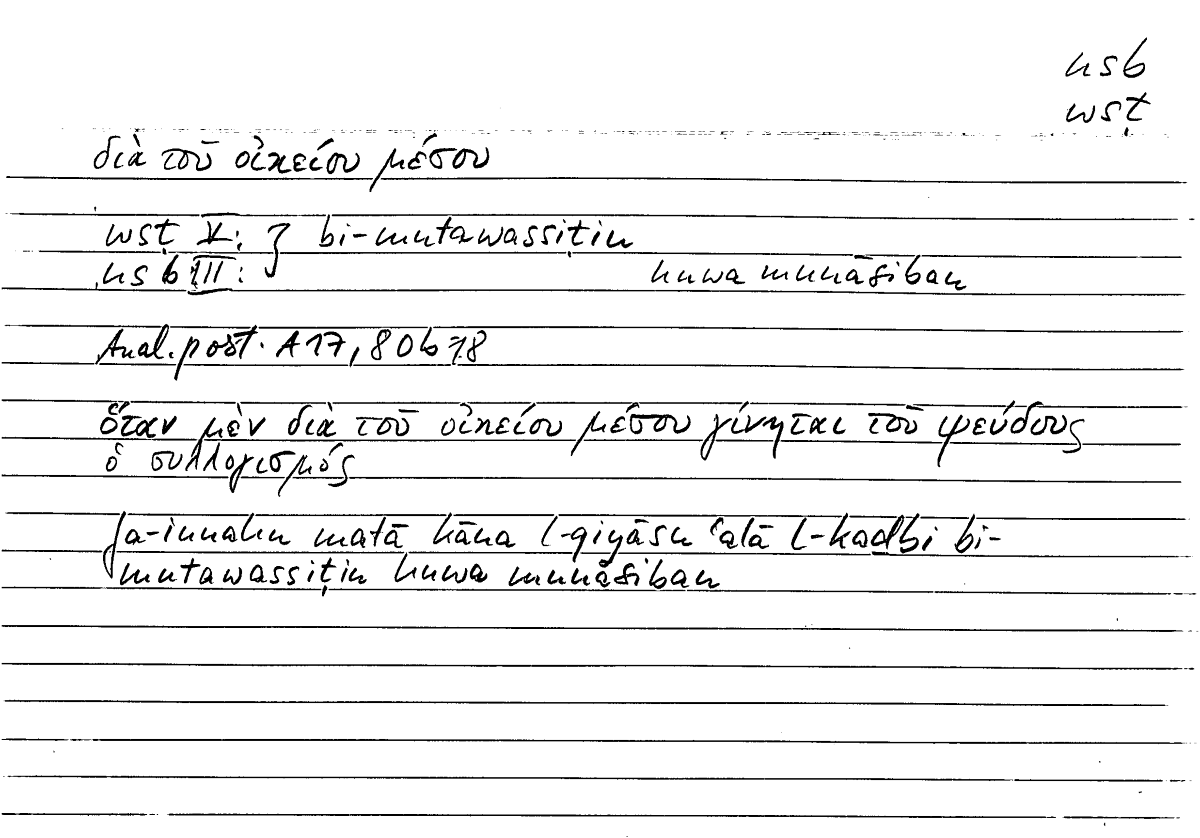 nsb
wsṭ
διὰ τοῦ οἰκείου μέσου
wsṭ V: } bi-mutawassiṭin
nsb III: huwa munāsiban
Anal. post. A 17, 80b 18
ὅταν μὲν διὰ τοῦ οἰκείου μέσου γίνηται τοῦ ψεύδους
ὁ συλλογισμός
fa-innahu matā kāna l-qiyāsu ʿalā l-kaḏbi bi-
mutawassiṭin huwa munāsiban